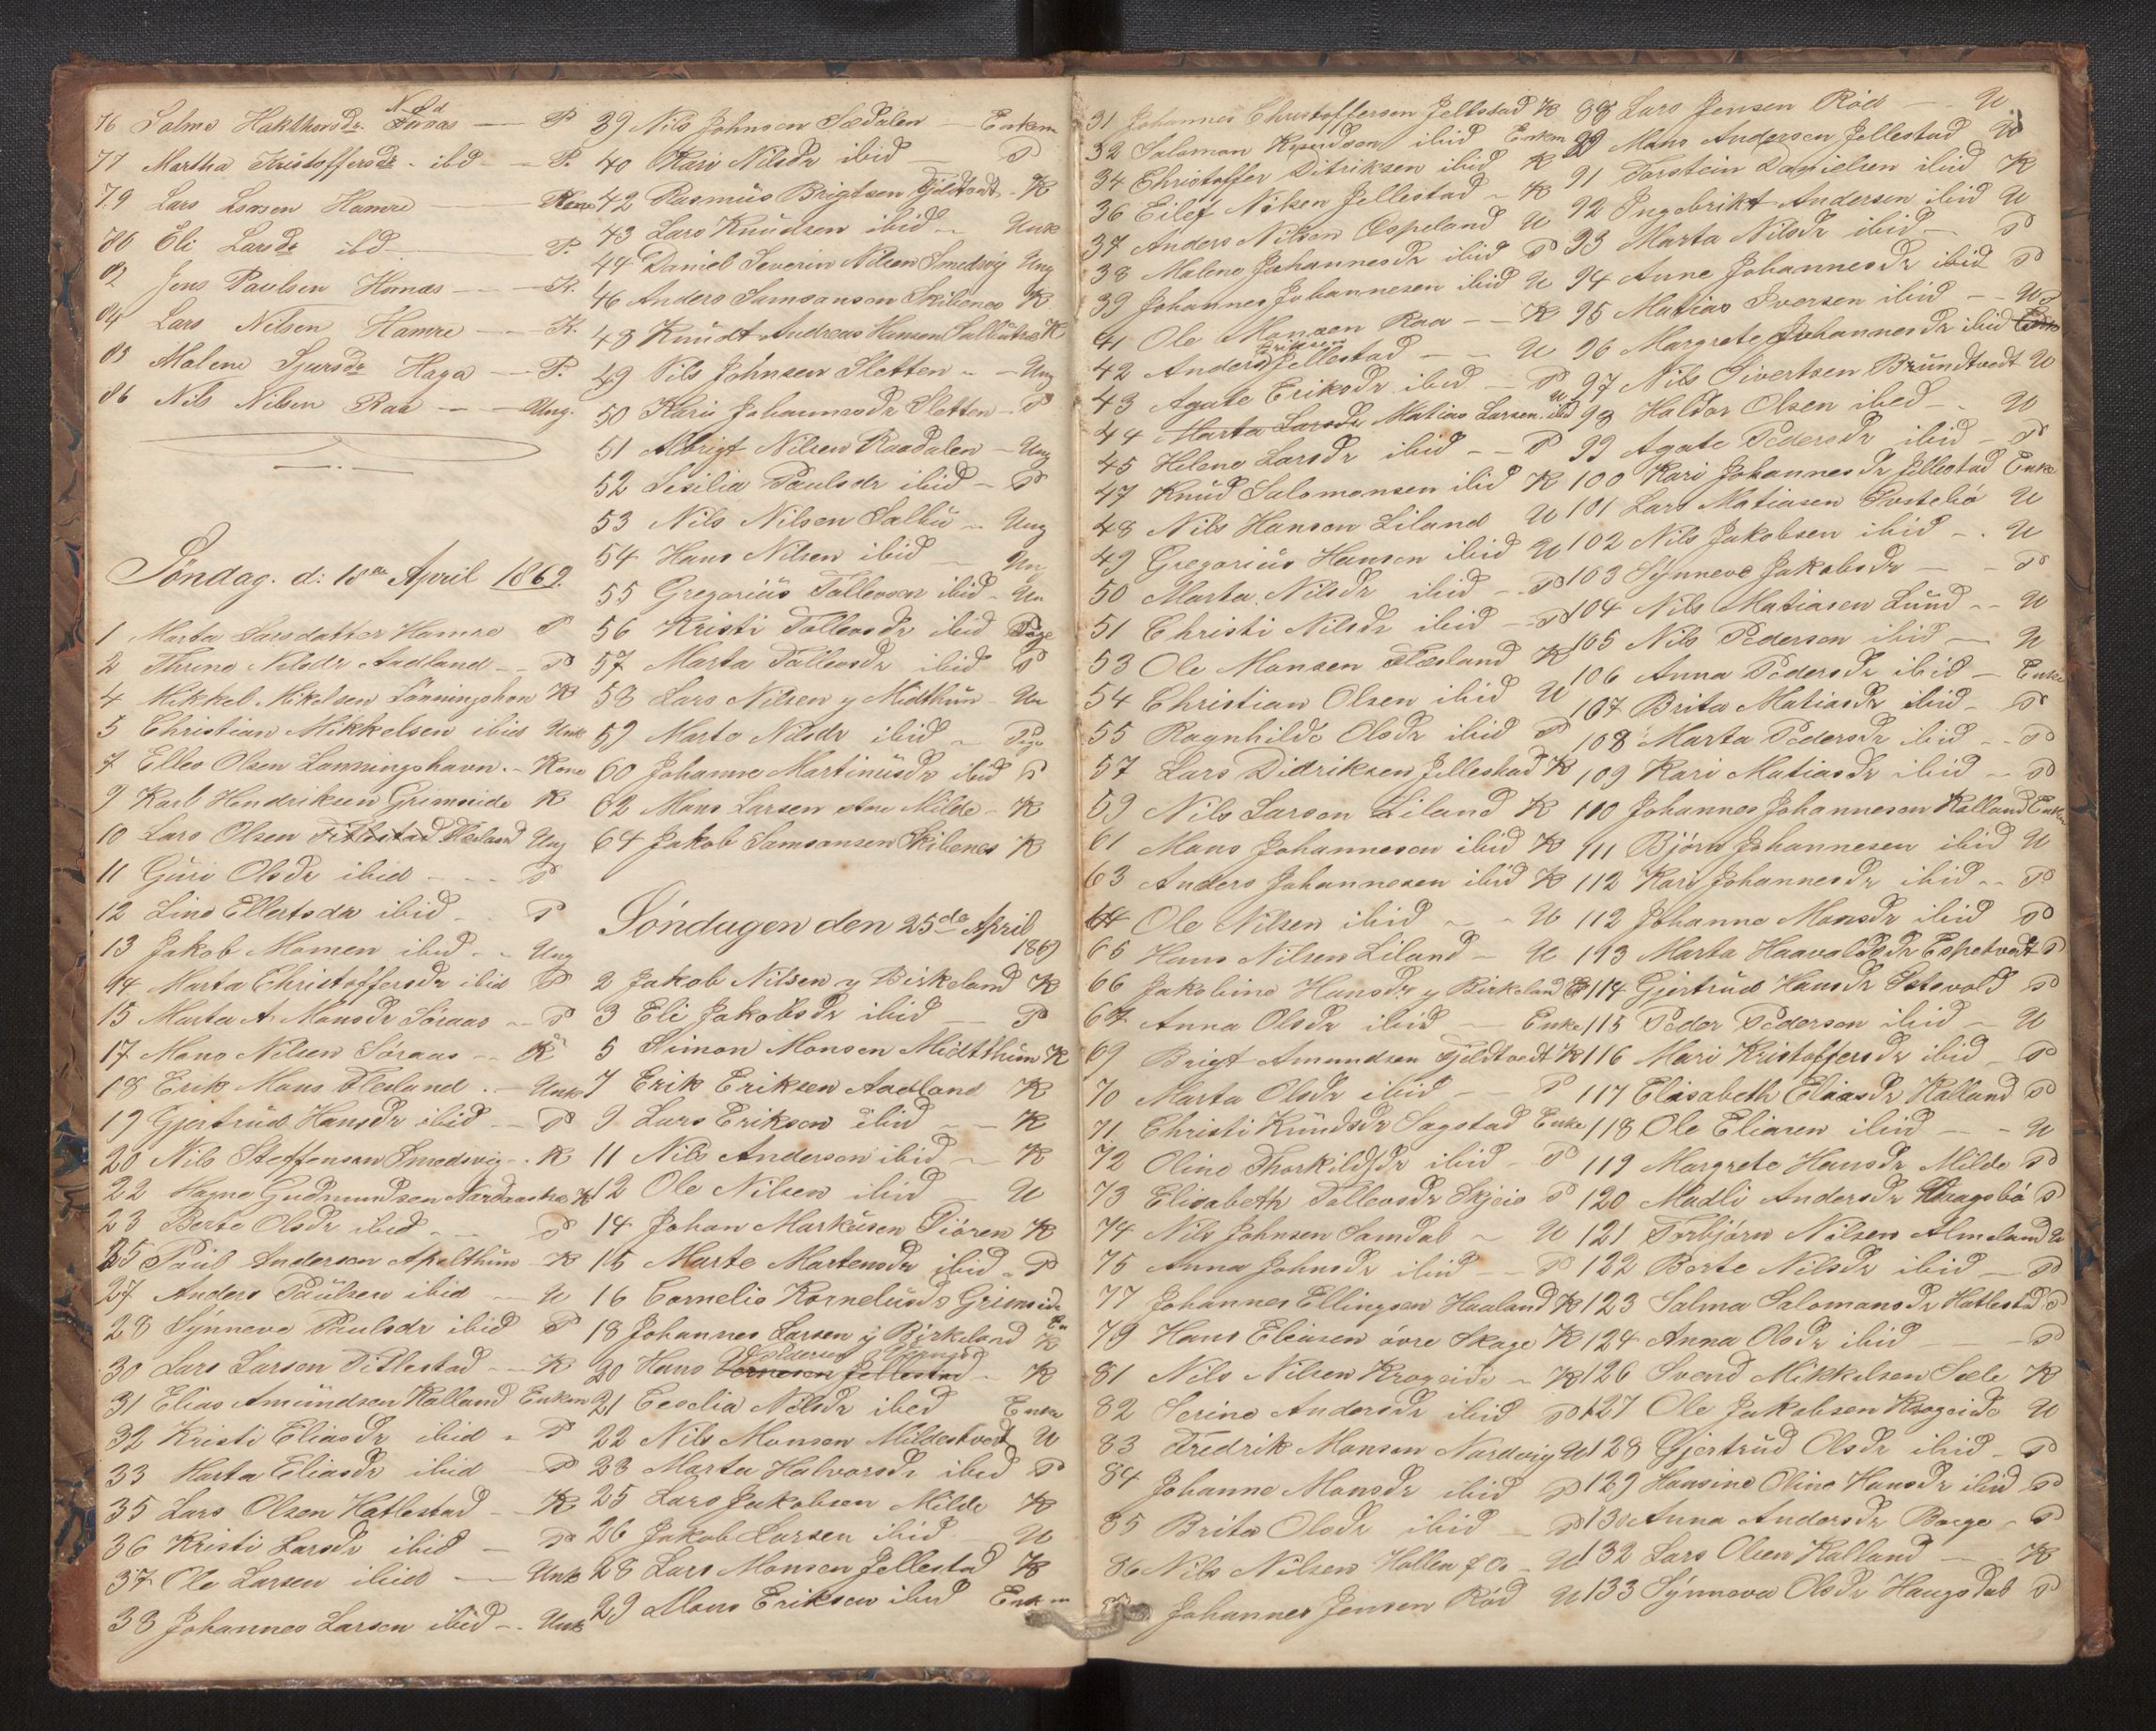 76 Salmo Hakthorsdr. N-Sd Furaas — P
77 Martha Kristoffersdr - ibd — P.
79 Lars Larsen Hamre — Kone
80 Eli Larsdr ibd. — P.
82 Jens Paulsen Hornæs — K.
84 Lars Nilsen Hamre — K.
85 Malene Sjursdr Haga — P.
86 Nils Nilsen Raa — Ung.
Søndag. d: 18de April 1869.
1 Marta Larsdatter Hamre P
2 Thrine Nilsdr Aadland — P
4 Mikkel Mikelsen Lønningshon K
5 Christian Mikkelsen ibid Unk
7 Elles Olsen Lønningshavn. - Kone
9 Karl Hendriksen Grimseide K
10 Lars Olsen Titlestad Flesland Ung
11 Guri Olsdr ibid - - - P
12 Line Ellertsdr ibid - P
13 Jakob Momen ibid - - Ung
14 Marta Christoffersdr ibid P
15 Marta A. Monsdr Søraas — P
17 Mons Nilsen Søraas — K
18 Erik Mons Flesland - Unk
19 Gjertrud Hansdr ibid — P
20 Nils Steffensen Smedsvig - K
22 Magne Gudmundsen Nordaastræ K
23 Berte Olsdr ibid - P
25 Paul Anderson Apelthun - K
27 Anders Paulsen ibid — U
28 Synneve Paulsdr ibid P
30 Lars Larsen Titlestad — K
31 Elias Amundsen Kalland Enkem
32 Kristi Eliasdr ibid - P
33 Marta Eliasdr ibid - P
35 Lars Olsen Hatlestad - K
36 Kristi Larsdr ibid — P
37 Ole Larsen ibid — Unk
38 Johannes Larsen ibid - Unk
39 Nils Johnsen Sædalen — Enkem
40 Kari Nilsdr ibid — P
42 Rasmus Brigtsen Fjeldtvedt - K
43 Lars Knudsen ibid - Unk
44 Daniel Severin Nilsen Smedsvig Ung
46 Anders Samsonsen Skibenes K
48 Knudt Andreas Hansen Salbutræ K
49 Nils Johnsen Sletten - - Ung
50 Kari Johannesdr Sletten - P
51 Albrigt Nilsen Raadalen - Ung
52 Sesilia Paulsdr ibid - P
53 Nils Nilsen Salbu - Ung
54 Hans Nilsen ibid — Ung
55 Gregorius Tollevsen ibid - Un
56 Kristi Tollevsdr ibid Pige
57 Marta Tollevsdr ibid P
58 Lars Nilsen y Midthun - Un
59 Marte Nilsdr ibid - Pige
60 Johanne Martinusdr ibid P
62 Mons Larsen øvre Milde - K
64 Jakob Samsonsen Skibenes K
Søndagen den 25de April
1869
2 Jakob Nilsen y Birkeland K
3 Eli Jakobsdr ibid — P
5 Simon Monsen Midtthun K
7 Erik Eriksen Aadland K
9 Lars Eriksen ibid — K
11 Nils Andersen ibid — K
12 Ole Nilsen ibid — U
14 Johan Markusen Tiøren K
15 Marte Martensdr ibid - P
16 Cornelia Kornelius Grimseide
18 Johannes Larsen y Birkeland K
20 Hans Pedersen Jellestad - K
21 Cecelia Nilsdr ibid Enke
22 Nils Monsen Mildestvedt U
23 Marta Halvorsdr ibid P
25 Lars Jakobsen Milde K
26 Jakob Larsen ibid U
28 Lars Monsen Jellestad K
29 Mons Eriksen ibid Enkem
31 Johannes Christoffersen Jellestad K
32 Salomon Knudsen ibid Enkm
34 Christoffer Ditriksen ibid K
36 Eilef Nilsen Jellestad - K
37 Anders Nilsen Espeland U
38 Malene Johannesdr ibid P
39 Johannes Johannesen ibid U
41 Ole Monsen Raa — K
42 Anders Eriksen Jellestad — U
43 Agate Eriksdr ibid — P
44 Marta Larsdr Matias Larsen ibd U
45 Helene Larsdr ibid - - P
47 Knud Salomonsen ibid K
48 Nils Hansen Liland U
49 Gregorius Hansen ibid U
50 Marta Nilsdr ibid - P
51 Christi Nilsdr ibid - P
53 Ole Monsen Flesland K
54 Christian Olsen ibid U
55 Ragnhilde Olsdr ibid P
57 Lars Didriksen Jellestad K
59 Nils Larsen Liland K
61 Mons Johannesen ibid K
63 Anders Johannesen ibid K
64 Ole Nilsen ibid - - U
65 Hans Nilsen Liland - U
66 Jakobine Hansdr y Birkeland P
67 Anna Olsdr ibid — Enke
69 Brigt Amundsen Fjeldtvedt K
70 Marta Olsdr ibid — P
71 Christi Knudsdr Sagstad Enke
72 Oline Thorkildsdr ibid - P
73 Elisabeth Tollevsdr Skjeie P
74 Nils Johnsen Samdal - U
75 Anna Johnsdr ibid — P
77 Johannes Ellingsen Haaland K
79 Hans Eliasen øvre Skage K
81 Nils Nilsen Krogeide - K
82 Serine Andersdr ibid P
83 Fredrik Monsen Nordvig U
84 Johanne Monsdr ibid P
85 Brita Olsdr ibid - P
86 Nils Nilsen Hollen - U
Johannes Jensen Rød U
88 Lars Jensen Rød - - U
89 Mons Andersen Jellestad U
91 Torstein Danielsen ibid K
92 Ingebrikt Andersen ibid U
93 Marta Nilsdr ibid - P
94 Anne Johannesdr ibid P
95 Matias Iversen ibid - - U
96 Margrete Johannesdr ibid P
97 Nils Sivertsen Brundtvedt U
98 Haldor Olsen ibid - U
99 Agate Pedersdr ibid - P
100 Kari Johannesdr Jellestad Enke
101 Lars Matiasen Tvetebø U
102 Nils Jakobsen ibid - . U
103 Synneve Jakobsdr - - P
104 Nils Matiasen Lund - - U
105 Nils Pedersen ibid — U
106 Anna Pedersdr ibid - Enke
107 Brita Matiasdr ibid - P
108 Marta Pedersdr ibid - - P
109 Kari Matiasdr ibid - P
110 Johannes Johannesen Kalland Enkem
111 Bjørn Johannesen ibid U
112 Kari Johannesdr ibid - - P
112 Johanne Monsdr ibid P
113 Marta Haavoldsdr Espetvedt P
114 Gjertrud Hansdr Setevold P
115 Peder Pedersen ibid - U
116 Mari Kristoffersdr ibid - P
117 Elisabeth Eliasdr Kalland P
118 Ole Eliasen ibid — - U
119 Margrete Hansdr Milde P
120 Madli Andersdr Kragsbø P
121 Torbjørn Nilsen Almeland U
122 Berte Nilsdr ibid - P
123 Salma Salomonsdr Hatlestad P
124 Anna Olsdr ibid - - P
126 Svend Mikkelsen Sæle K
127 Ole Jakobsen Krogeide U
128 Gjertrud Olsdr ibid - P
129 Hansine Oline Hansdr ibid P
130 Anna Andersdr Borge - P
132 Lars Olsen Kalland — K
133 Synneva Olsdr Haugsdal P